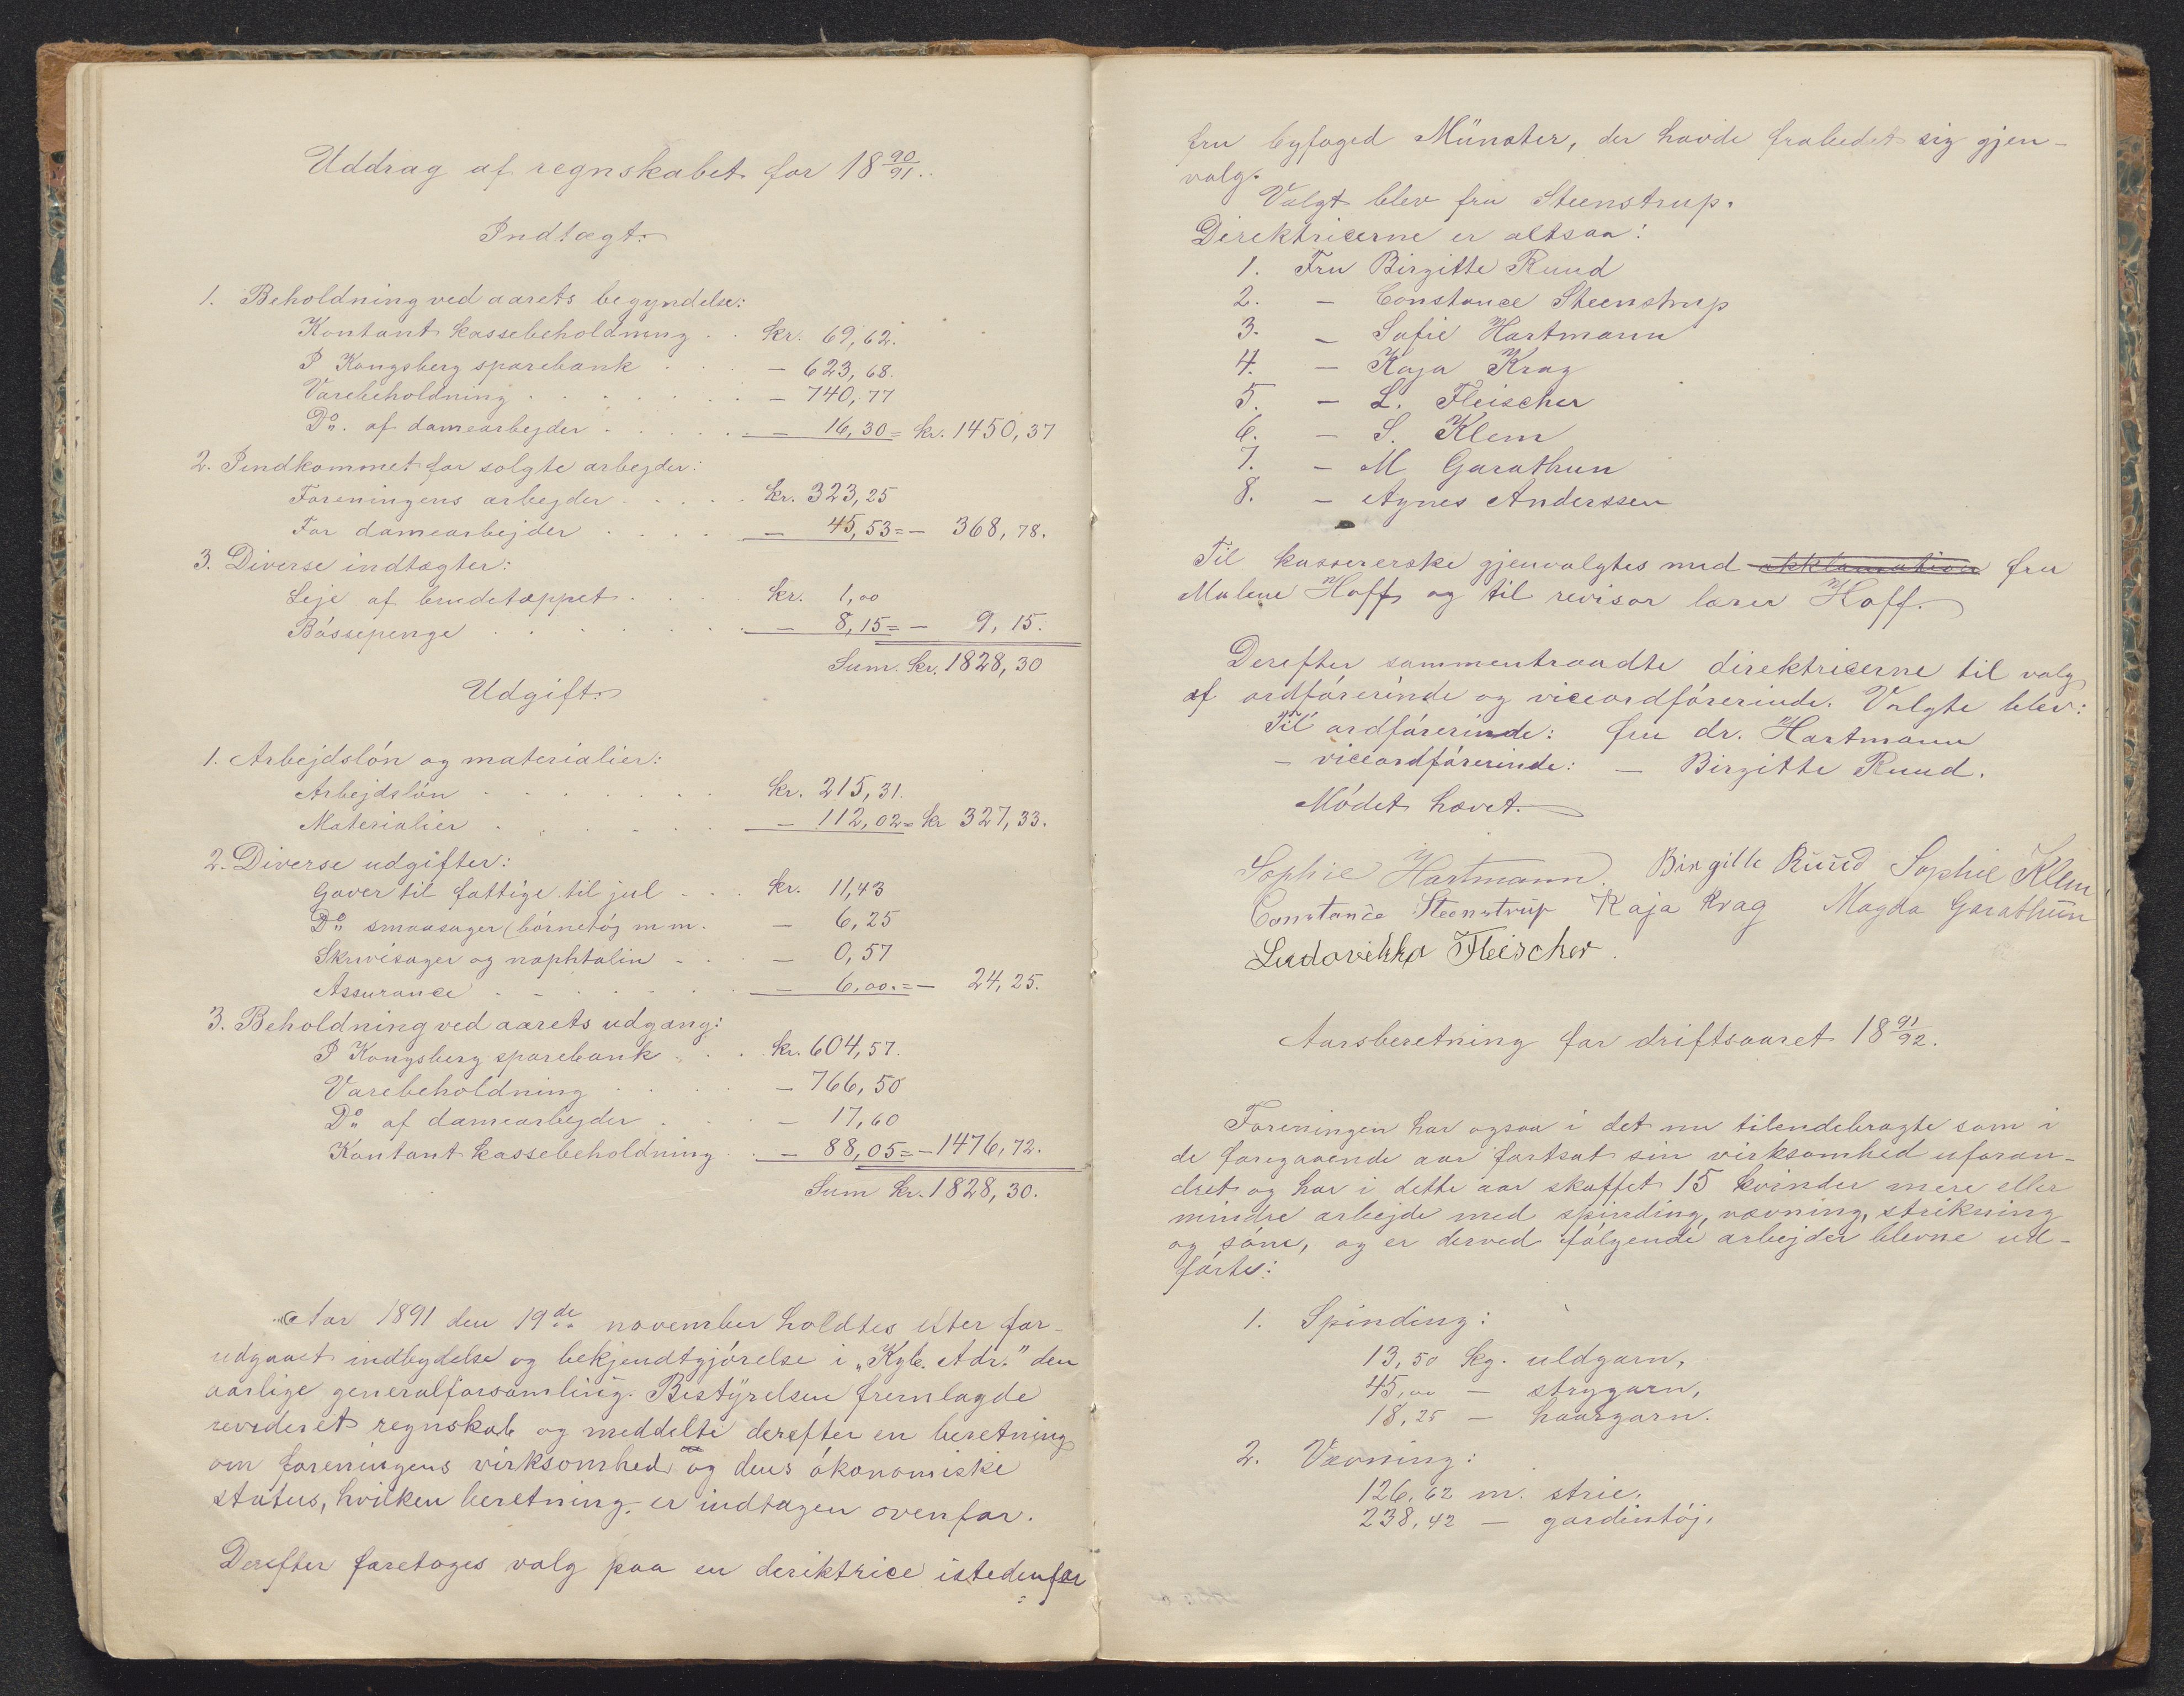 Uddrag af regnskabet for 18 90/91.
Indtægt.
1. Beholdning ved aarets begyndelse:
Kontant kassebeholdning . . kr. 69,62.
I Kongsberg sparebank . . . - 623,68.
Varebeholdning . . . . . . - 740,77
Do. af damearbejder . . . . - 16,30 = kr. 1450,37
2. Indkommet for solgte arbejder:
Foreningens arbejder . . . . kr. 323,25
For damearbejder . . . . - 45,53 = - 368,78.
3. Diverse indtægter:
Leje af brudetæppet . . . kr. 1,00
Bössepenge . . . . . . - 8,15 = - 9,15.
Sum. kr. 1828,30
Udgift.
1. Arbejdslön og materialier:
Arbejdslön . . . . . . . kr. 215,31.
Materialier . . . . . . - 112,02 = kr 327,33.
2. Diverse udgifter:
Gaver til fattige til jul . . . kr. 11,43
Do smaasager (börnetöj m m. - 6,25
Skrivesager og naphtalin - . . - 0,57
Assurance . . . . . . . - 6,00. = - 24,25.
3. Beholdning ved aarets udgang:
I Kongsberg sparebank . . . kr. 604,57.
Varebeholdning . . . . - 766,50
Do af damearbejder . . . - 17,60
Kontant kassebeholdning . . - 88,05 = - 1476,72.
Sum kr. 1828,30.
Aar 1891 den 19de november holdtes efter for-
udgaaet indbydelse og bekjendtgjörelse i „Kgb. Adr." den
aarlige generalforsamling. Bestyrelsen fremlagde
revideret regnskab og meddelte derefter en beretning
om foreningens virksomhed og dens ökonomiske
status, hvilken beretning er indtagen ovenfor.
Derefter foretoges valg paa en deriktrice istedenfor
fru byfoged Münster, der havde frabedet sig gjen-
valg.
Valgt blev fru Steenstrup.
Direktricerne er altsaa:
1. Fru Birgitte Ruud
2. - Constance Steenstrup
3. - Sofie Hartmann
4. - Kaja Krag
5. - L. Fleischer
6. - S. Klem
7. - M Garathun
8. - Agnes Anderssen
Til kassererske gjenvalgtes med akklamation fru
Malene Hoff og til revisor lærer Hoff.
Derefter sammentraadte direktricerne til valg
af ordförerinde og viceordförerinde. Valgte blev:
Til ordförerinde: fru dr. Hartmann
- viceordförerinde: - Birgitte Ruud.
Mödet hævet.
Sophie Hartmann. Birgitte Ruud Sophie Klem
Constance Steenstrup Kaja Krag Magda Garathun
Ludovikka Fleischer.
Aarsberetning for driftsaaret 18 91/92.
Foreningen har ogsaa i det nu tilendebragte som i
de foregaaende aar fortsat sin virksomhed uforan-
dret og har i dette aar skaffet 15 kvinder mere eller
mindre arbejde med spinding, vævning, strikning
og söm, og er derved fölgende arbejder blevne ud-
förte:
1. Spinding:
13,50 kg. uldgarn,
45,00 - strygarn,
18,25 - haargarn.
2. Vævning:
126,62 m. strie,
238,42 - gardintöj,